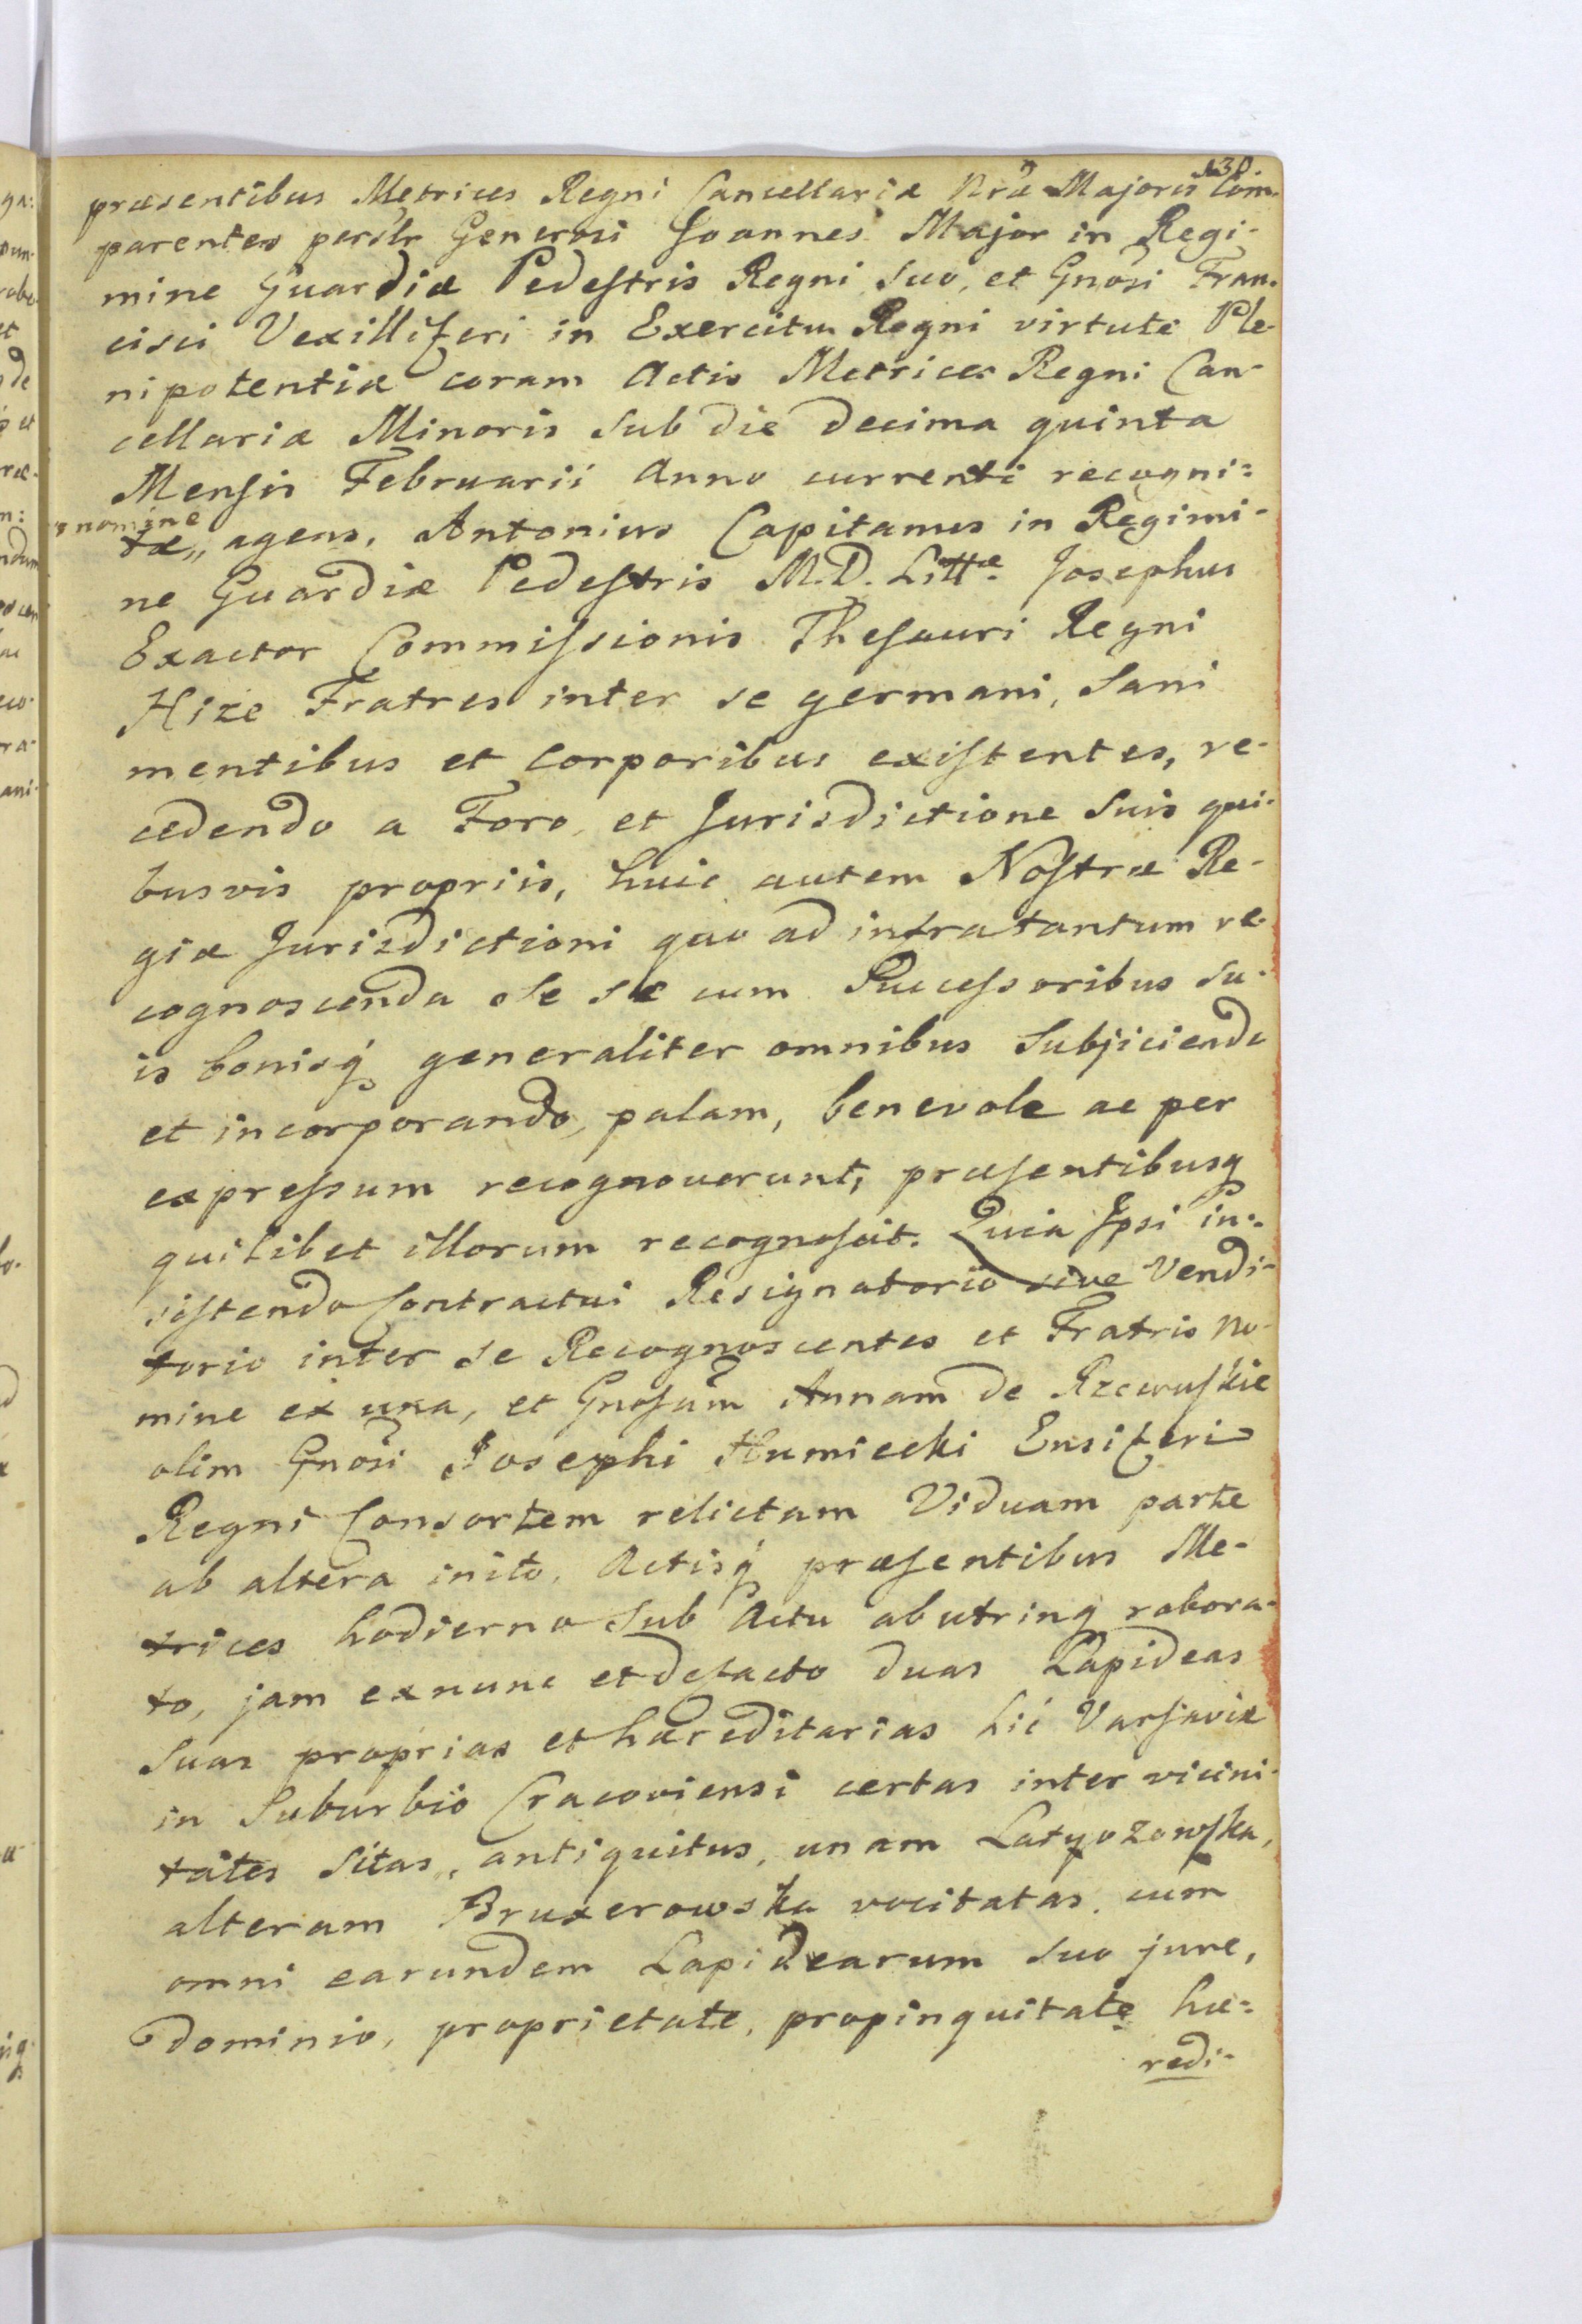 130.
præsentibus Metrices Regni Cancellariæ Nræ Majoris Com-
parentes persolr Generosi Joannes Major in Regi-
mine Guardiæ Pedestris Regni, suo, et Gnosi Fran-
cisci Vexilliferi in Exercitu Regni virtute Ple-
nipotentiæ coram Actis Metrices Regni Can-
cellariæ Minoris sub die decima quinta
Mensis Februarii Anno currenti recogni=
nomine
tæ,, agens, Antonius Capitaneus in Regimi-
ne Guardiæ Pedestris M.D. Littæ. Josephus
Exactor Commissionis Thesauri Regni
Hize Fratres inter se germani, Sani
mentibus et Corporibus existentes, re-
cedendo a Foro, et Jurisdictione suis qui-
busvis propriis, huic autem Nostræ Re-
giæ Jurisdictioni quo ad infra tantum re-
cognoscenda se se cum Successoribus su-
is bonisq generaliter omnibus subjiciendo
et incorporando, palam, benevole ac per
expressum recognoverunt, præsentibusq
quilibet illorum recognoscit. Quia Ipsi in-
sistendo Contractui Resignatorio sive Vendi-
torio inter se Recognoscentes et Fratris no-
mine ex una, et Gnosam Annam de Rzewuskie
olim Gnosi Josephi Humiecki Ensiferi
Regni Consortem relictam Viduam parte
ab altera inito, Actisq præsentibus Me-
trices hodierno sub Actu ab utrinq robora-
to, jam exnunc et defacto duas Lapideas
suas proprias et hæreditarias hic Varsaviæ
in Suburbio Cracoviensi certas inter vicini-
tates sitas, antiquitus, unam Latyozowska,
alteram Bruxerowska vocitatas, cum
omni earundem Lapidearum suo jure,
dominio, proprietate, propinquitate hæ=
redi-